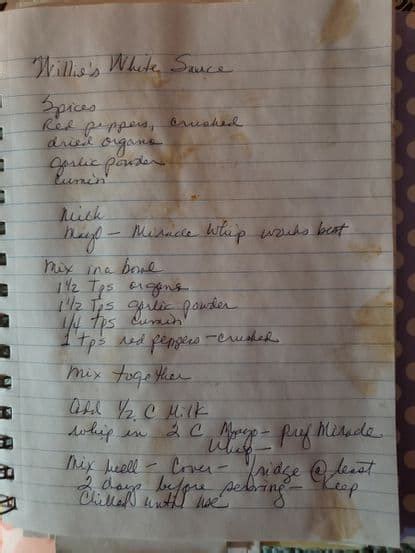 Willie's White Sauce
Spices
Red peppers, crushed
dried organo
garlic powder
Cumin
Milk
Mayo - Miracle Whip works best
Mix in a bowl
1 1/2 Tps organo
1 1/2 Tps garlic powder
1/4 tps cumin
1 tps red peppers - crushed
Mix together
Add 1/2 C Milk
whip in 2 C Mayo - pref Miracle
Whip -
Mix well - Cover - fridge @ least
2 days before serving - Keep
Chilled until use